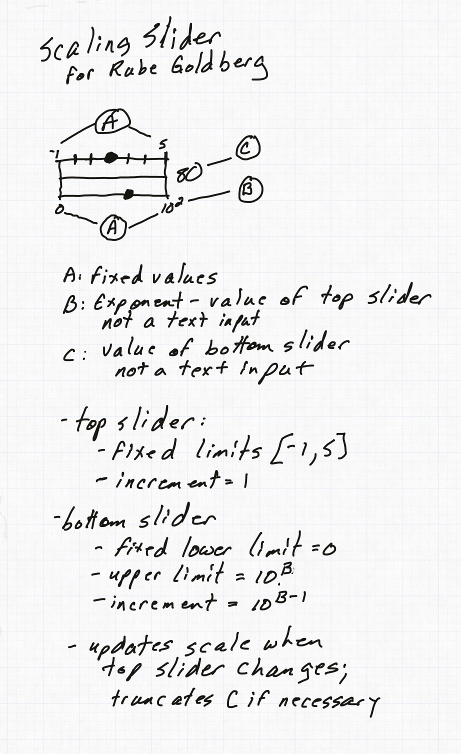 Scaling Slider
for Rube Goldberg
A
-1
5
C
80
B
0
10²
A
A: fixed values
B: Exponent - value of top slider
not a text input
C: value of bottom slider
not a text input
- top slider:
- fixed limits [-1, 5]
- increment = 1
- bottom slider
- fixed lower limit = 0
- upper limit = 10^B
- increment = 10^B-1
- updates scale when
top slider changes;
truncates C if necessary